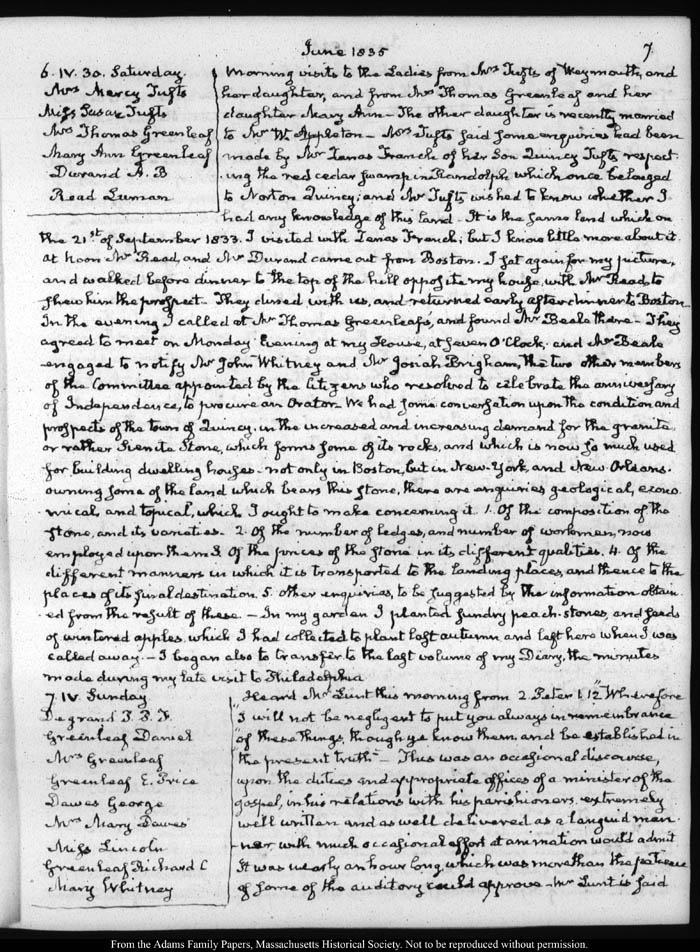 June 1835 7
6. IV. 30. Saturday.
Mrs Mercy Tufts
Miss Susan Tufts
Mrs Thomas Greenleaf
Mary Ann Greenleaf
Durand A. B
Read Luman
Morning visits to the Ladies from Mrs Tufts of Weymouth, and
her daughter, and from Mrs Thomas Greenleaf and her
daughter Mary Ann — The other daughter is recently married
to Mr W. Appleton — Mrs Tufts said some enquiries had been
made by Mr Lenas French of her Son Quincy Tufts respect-
ing the red cedar swamp in Randolph which once belonged
to Norton Quincy; and Mr Tufts wished to know whether I
had any knowledge of this land — It is the same land which on
the 21st of September 1833. I visited with Lenas French; but I know little more about it.
At Noon Mr Read, and Mr Durand came out from Boston. I sat again for my picture,
and walked before dinner to the top of the hill opposite my house, with Mr Read, to
shew him the prospect — They dined with us, and returned early after dinner to Boston—
In the evening I called at Mr Thomas Greenleaf's, and found Mr Beale there — They
agreed to meet on Monday Evening at my House, at seven O'Clock, and Mr Beale
engaged to notify Mr John Whitney and Mr Josiah Brigham, the two other members
of the Committee appointed by the Citizens who resolved to celebrate the anniversary
of Independence, to procure an Orator. We had some conversation upon the condition and
prospects of the town of Quincy, in the increased and increasing demand for the granite
or rather Sienite Stone, which forms some of its rocks, and which is now so much used
for building dwelling houses — not only in Boston, but in New-York, and New Orleans.
owning some of the land which bears this stone, there are enquiries geological, econo-
mical, and topical, which I ought to make concerning it. 1. Of the composition of the
stone, and its varieties. 2. Of the number of ledges, and number of workmen, now
employed upon them 3. Of the prices of the stone in its different qualities. 4. Of the
different manners in which it is transported to the landing places, and thence to the
places of its final destination. 5. other enquiries, to be suggested by the information obtain-
ed from the result of these. — In my garden I planted sundry peach-stones, and seeds
of wintered apples, which I had collected to plant last autumn and left here when I was
called away. — I began also to transfer to the last volume of my Diary, the minutes
made during my late visit to Philadelphia
7. IV. Sunday
Degrand P. P. F.
Greenleaf Daniel
Mrs Greenleaf
Greenleaf E. Price
Dawes George
Mrs Mary Dawes
Miss Lincoln
Greenleaf Richard C
Mary Whitney
Heard Mr Lunt this morning from 2. Peter 1. 12 "Wherefore
"I will not be negligent to put you always in remembrance
"of these things, though ye know them, and be established in
"the present truth" — This was an occasional discourse,
upon the duties and appropriate offices of a minister of the
gospel, in his relations with his parishioners. extremely
well written and as well delivered as a languid man-
ner with much occasional effort at animation would admit
It was nearly an hour long, which was more than the patience
of some of the auditory could approve — Mr Lunt is said
From the Adams Family Papers, Massachusetts Historical Society. Not to be reproduced without permission.